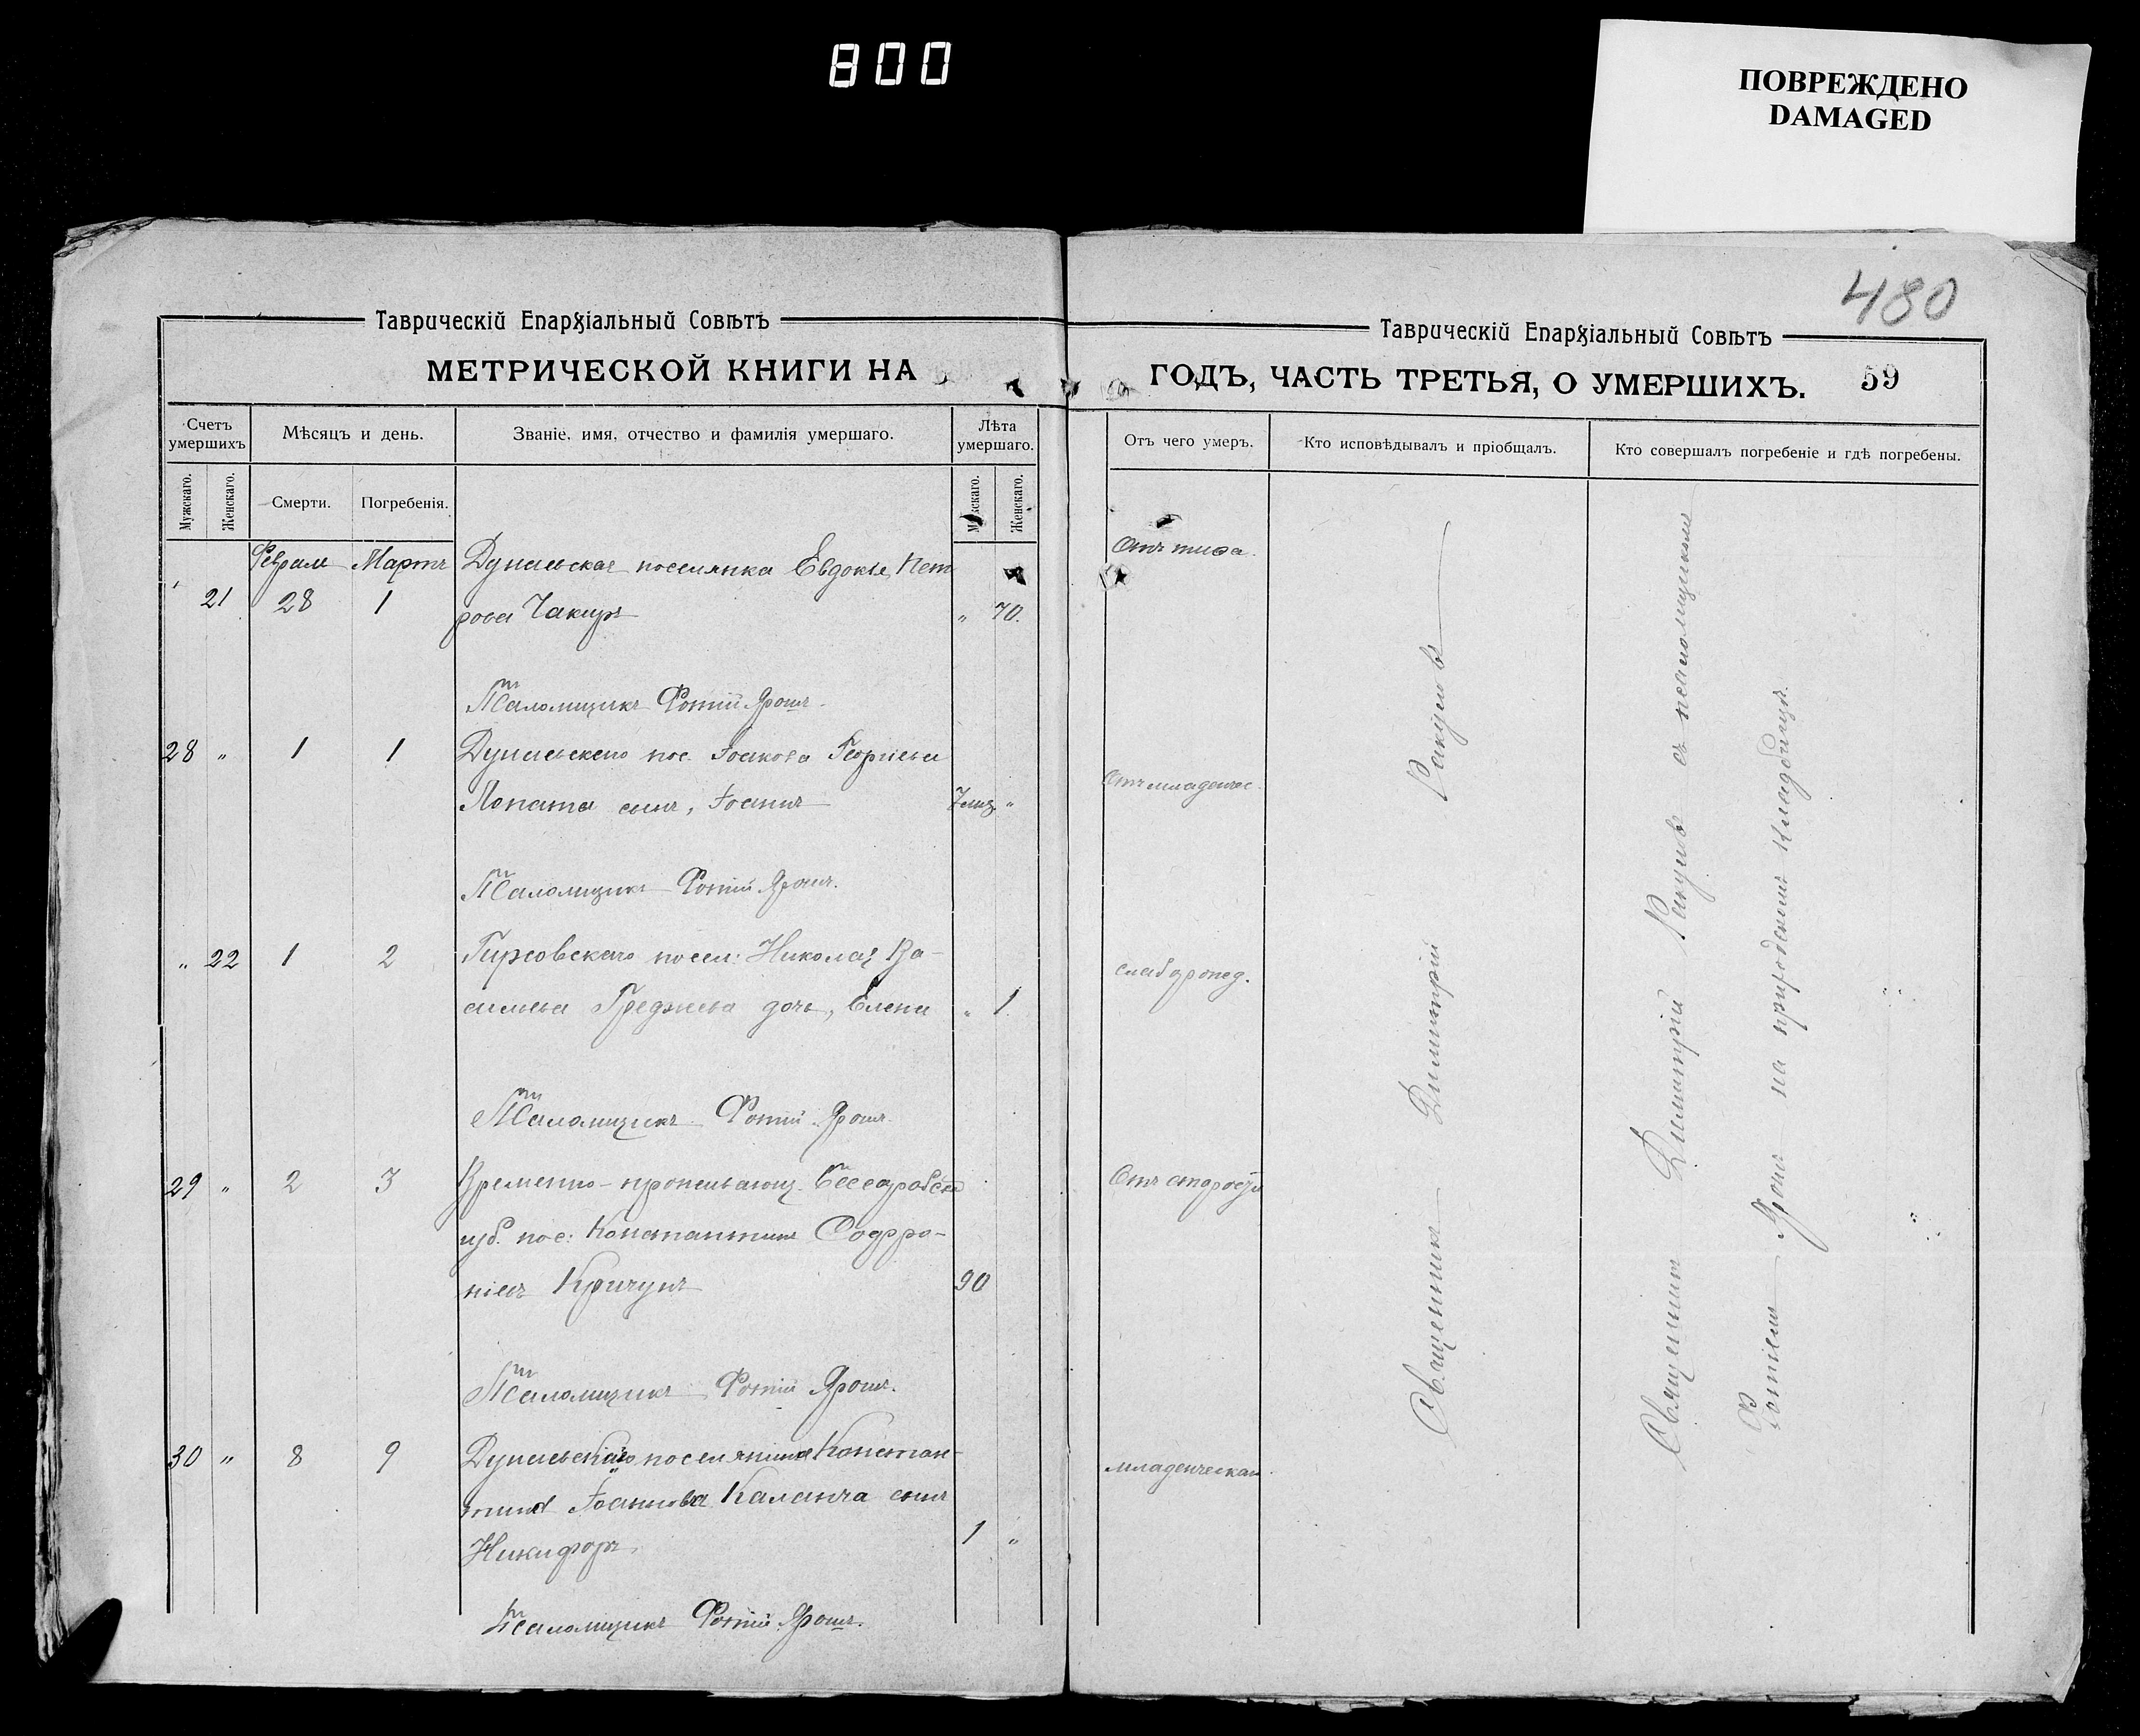 800
ПОВРЕЖДЕНО
DAMAGED
480
Таврическій Епархіальный Совѣтъ
МЕТРИЧЕСКОЙ КНИГИ НА
Счетъ умершихъ
Мѣсяцъ и день.
Званіе, имя, отчество и фамилія умершаго.
Лѣта умершаго.
Мужскаго.
Женскаго.
Смерти.
Погребенія.
Мужскаго.
Женскаго.
Февраля Марта Дунаевская поселянка Евдокія Пет
21 28 1 рова Чакиръ " 70.
Псаломщикъ Фотій Ярошъ.
28 " 1 1 Дунаевскаго пос. Іоакова Георгіева
Лопата сынъ, Іоаннъ 7 мц. "
Псаломщикъ Фотій Ярошъ.
" 22 1 2 Гирсовскаго посел: Николая Ва-
сильева Греджева дочь, Елена " 1.
Псаломщикъ Фотій Ярошъ.
29 " 2 3 Временно-проживающ. Бессарабской
губ. пос: Константинъ Софро-
ніевъ Кричунъ 90
Псаломщикъ Фотій Ярошъ.
30 " 8 9 Дунаевскаго поселянина Констан-
тина Іоаннова Каланча сынъ
Никифоръ. 1 "
Псаломщикъ Фотій Ярошъ.
Таврическій Епархіальный Совѣтъ
ГОДЪ, ЧАСТЬ ТРЕТЬЯ, О УМЕРШИХЪ. 59
Отъ чего умеръ.
Кто исповѣдывалъ и пріобщалъ.
Кто совершалъ погребеніе и гдѣ погребены.
Отъ тифа.
Отъ младенчес.
слаборожд.
Отъ старости
младенческая.
Священникъ Димитрій Ракуев
Священникъ Димитрій Ракуев съ псаломщикомъ
Фотіемъ Ярошъ на приходскомъ кладбищѣ.